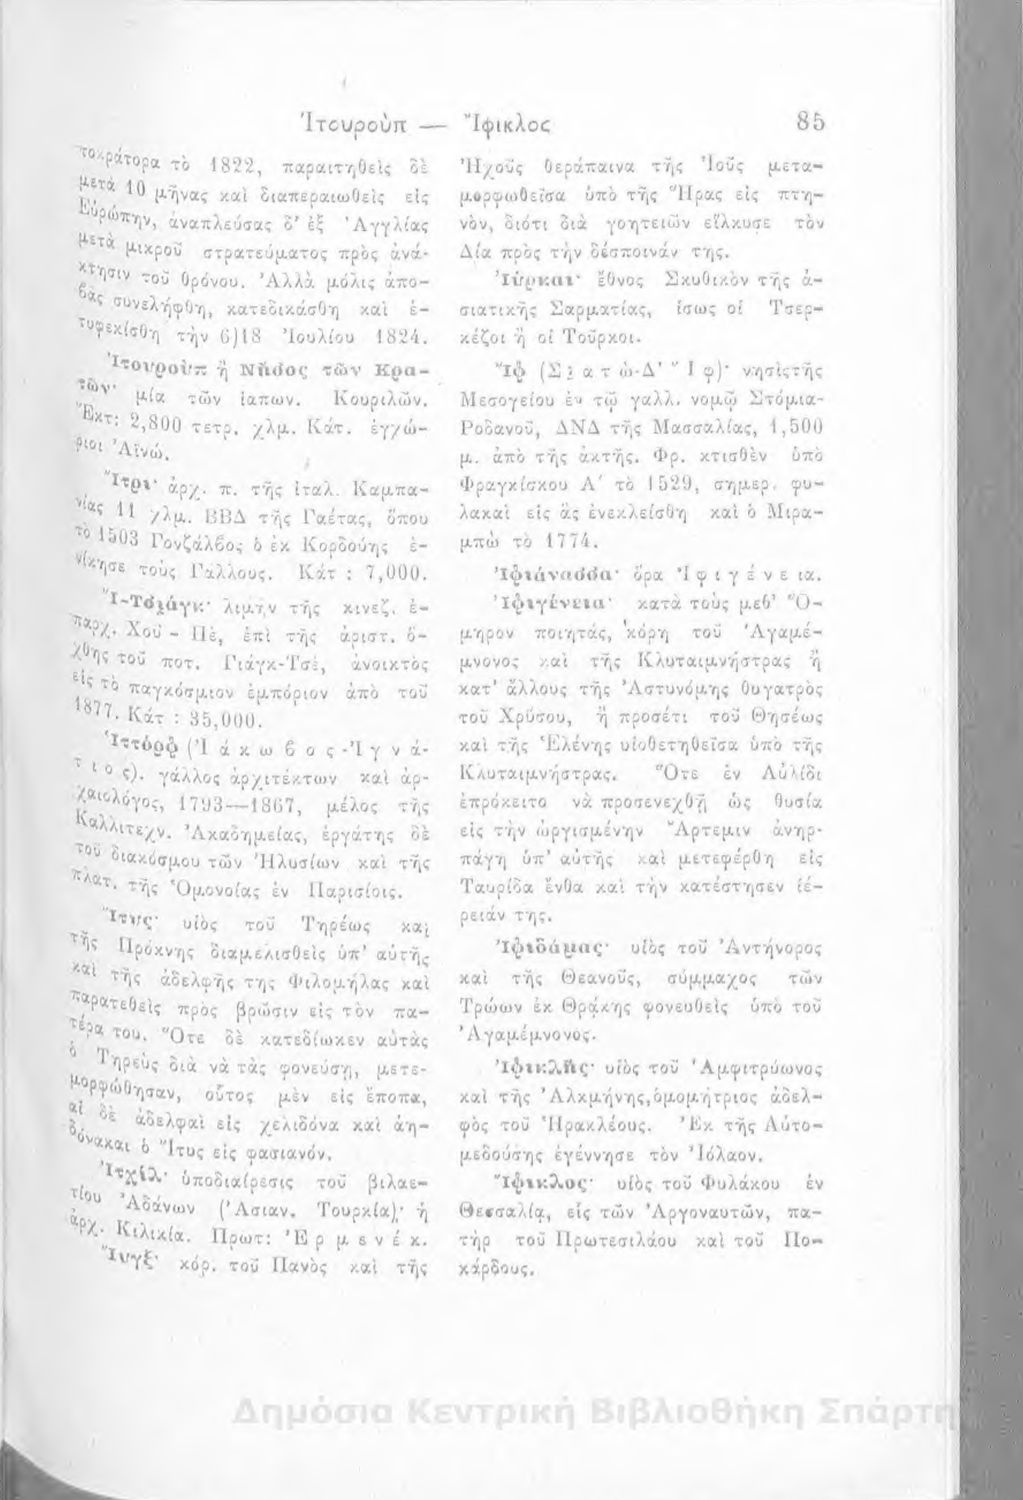 Ἰτουρούπ — Ἴφικλος 85
τοκράτορα τὸ 1822, παραιτηθεὶς δὲ
μετὰ 10 μῆνας καὶ διαπεραιωθεὶς εἰς
Εὐρώπην, ἀναπλεύσας δ' ἐξ Ἀγγλίας
μετὰ μικροῦ στρατεύματος πρὸς ἀνά-
κτησιν τοῦ θρόνου. Ἀλλὰ μόλις ἀπο-
βὰς συνελήφθη, κατεδικάσθη καὶ ἐ-
τυφεκίσθη τὴν 6)18 Ἰουλίου 1824.
Ἰτουροὺπ ἢ Νῆσος τῶν Κρα-
τῶν· μία τῶν ἰαπων. Κουριλῶν.
Ἔκτ: 2,800 τετρ. χλμ. Κάτ. ἐγχώ-
ριοι Ἀϊνώ.
Ἴτρι· ἀρχ. π. τῆς ἰταλ. Καμπα-
νίας 11 χλμ. ΒΒΔ τῆς Γαέτας, ὅπου
τὸ 1503 Γονζάλβος ὁ ἐκ Κορδούης ἐ-
νίκησε τοὺς Γάλλους. Κάτ : 7,000.
Ἰ-Τσιάγκ· λιμὴν τῆς κινεζ. ἐ-
παρχ. Χού - Πέ, ἐπὶ τῆς ἀριστ. ὄ-
χθης τοῦ ποτ. Γιάγκ-Τσέ, ἀνοικτὸς
εἰς τὸ παγκόσμιον ἐμπόριον ἀπὸ τοῦ
1877. Κάτ : 35,000.
Ἰττόρφ (Ἰάκωβος-Ἰγνά-
τιος). γάλλος ἀρχιτέκτων καὶ ἀρ-
χαιολόγος, 1793—1867, μέλος τῆς
Καλλιτεχν. Ἀκαδημείας, ἐργάτης δὲ
τοῦ διακόσμου τῶν Ἠλυσίων καὶ τῆς
πλατ. τῆς Ὁμονοίας ἐν Παρισίοις.
Ἴτυς· υἱὸς τοῦ Τηρέως καὶ
τῆς Πρόκνης διαμελισθεὶς ὑπ' αὐτῆς
καὶ τῆς ἀδελφῆς της Φιλομήλας καὶ
παρατεθεὶς πρὸς βρῶσιν εἰς τὸν πα-
τέρα του. Ὅτε δὲ κατεδίωκεν αὐτὰς
ὁ Τηρεὺς διὰ νὰ τὰς φονεύσῃ, μετε-
μορφώθησαν, οὗτος μὲν εἰς ἔποπα,
αἱ δὲ ἀδελφαὶ εἰς χελιδόνα καὶ ἀη-
δόνακαι ὁ Ἴτυς εἰς φασιανόν.
Ἰτχίλ· ὑποδιαίρεσις τοῦ βιλαε-
τίου Ἀδάνων (Ἀσιαν. Τουρκία)· ἡ
ἀρχ. Κιλικία. Πρωτ: Ἐρμενέκ.
Ἴυγξ· κόρ. τοῦ Πανὸς καὶ τῆς
Ἠχοῦς θεράπαινα τῆς Ἰοῦς μετα-
μορφωθεῖσα ὑπὸ τῆς Ἥρας εἰς πτη-
νόν, διότι διὰ γοητειῶν εἵλκυσε τὸν
Δία πρὸς τὴν δέσποινάν της.
Ἰύρκαι· ἔθνος Σκυθικὸν τῆς ἀ-
σιατικῆς Σαρματίας, ἴσως οἱ Τσερ-
κέζοι ἢ οἱ Τοῦρκοι.
Ἴφ (Σατώ-Δ' Ἴφ)· νησὶςτῆς
Μεσογείου ἐν τῷ γαλλ. νομῷ Στόμια-
Ροδανοῦ, ΔΝΔ τῆς Μασσαλίας, 1,500
μ. ἀπὸ τῆς ἀκτῆς. Φρ. κτισθὲν ὑπὸ
Φραγκίσκου Α' τὸ 1529, σημερ. φυ-
λακαὶ εἰς ἃς ἐνεκλείσθη καὶ ὁ Μιρα-
μπὼ τὸ 1774.
Ἰφιάνασσα· ὅρα Ἰφιγένεια.
Ἰφιγένεια· κατὰ τοὺς μεθ' Ὅ-
μηρον ποιητάς, κόρη τοῦ Ἀγαμέ-
μνονος καὶ τῆς Κλυταιμνήστρας ἢ
κατ' ἄλλους τῆς Ἀστυνόμης θυγατρὸς
τοῦ Χρύσου, ἢ προσέτι τοῦ Θησέως
καὶ τῆς Ἑλένης υἱοθετηθεῖσα ὑπὸ τῆς
Κλυταιμνήστρας. Ὅτε ἐν Αὐλίδι
ἐπρόκειτο νὰ προσενεχθῇ ὡς θυσία
εἰς τὴν ὠργισμένην Ἄρτεμιν ἀνηρ-
πάγη ὑπ' αὐτῆς καὶ μετεφέρθη εἰς
Ταυρίδα ἔνθα καὶ τὴν κατέστησεν ἱέ-
ρειάν της.
Ἰφιδάμας· υἱὸς τοῦ Ἀντήνορος
καὶ τῆς Θεανοῦς, σύμμαχος τῶν
Τρώων ἐκ Θράκης φονευθεὶς ὑπὸ τοῦ
Ἀγαμέμνονος.
Ἰφικλῆς· υἱὸς τοῦ Ἀμφιτρύωνος
καὶ τῆς Ἀλκμήνης,ὁμομήτριος ἀδελ-
φὸς τοῦ Ἡρακλέους. Ἐκ τῆς Αὐτο-
μεδούσης ἐγέννησε τὸν Ἰόλαον.
Ἴφικλος· υἱὸς τοῦ Φυλάκου ἐν
Θεσσαλίᾳ, εἷς τῶν Ἀργοναυτῶν, πα-
τὴρ τοῦ Πρωτεσιλάου καὶ τοῦ Πο-
κάρδους.
Δημόσια Κεντρική Βιβλιοθήκη Σπάρτη